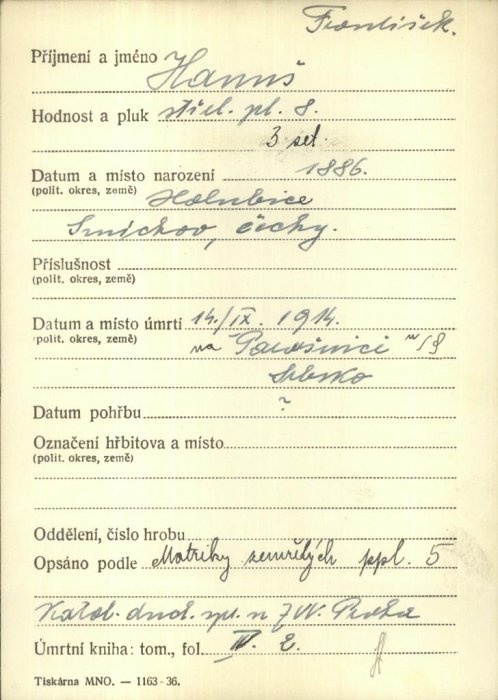 František.
Příjmení a jméno Hanuš
Hodnost a pluk střel. pl. 8.
3 set.
Datum a místo narození 1886.
(polit. okres, země) Holubice
Smíchov, Čechy.
Příslušnost
(polit. okres, země)
Datum a místo úmrtí 14./IX. 1914.
(polit. okres, země) na Parašnici
Srbsko
Datum pohřbu ?
Označení hřbitova a místo
(polit. okres, země)
Oddělení, číslo hrobu
Opsáno podle Matriky zemřelých ppl. 5
Katol. duch. spr. n ZVV. Praha
Úmrtní kniha: tom., fol. IV. 2.
Tiskárna MNO. — 1163-36.